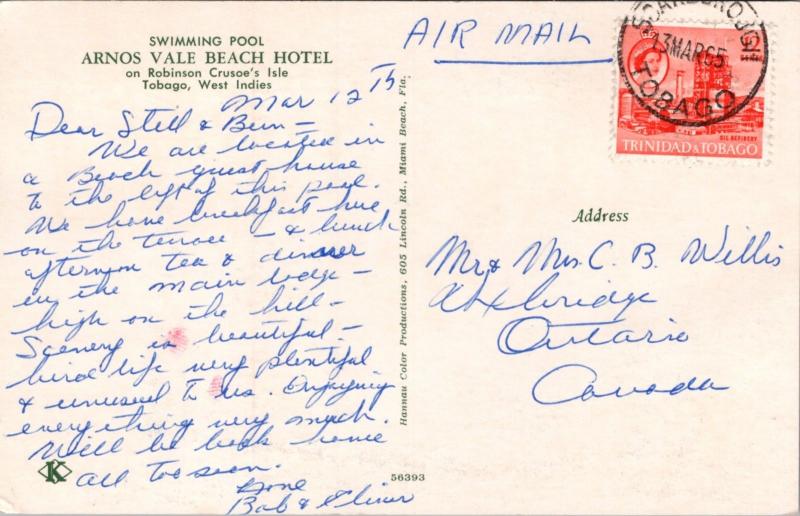 SWIMMING POOL
ARNOS VALE BEACH HOTEL
on Robinson Crusoe's Isle
Tobago, West Indies
Mar 12th
Dear Stell & Bern –
We are located in
a Beach guest house
to the left of this pool.
We have breakfast here
on the terrace – & lunch
afternoon tea & dinner
in the main lodge –
high on the hill –
Scenery is beautiful –
bird life very plentiful
& unusual to us. Enjoying
everything very much.
Will be back home
all too soon.
Love
Bob &
K
56393
Hannau Color Productions, 605 Lincoln Rd., Miami Beach, Fla.
AIR MAIL
SCARBOROUGH
13 MAR 65
TOBAGO
OIL REFINERY
TRINIDAD & TOBAGO
Address
Mr & Mrs. C. B. Willis
Uxbridge
Ontario
Canada